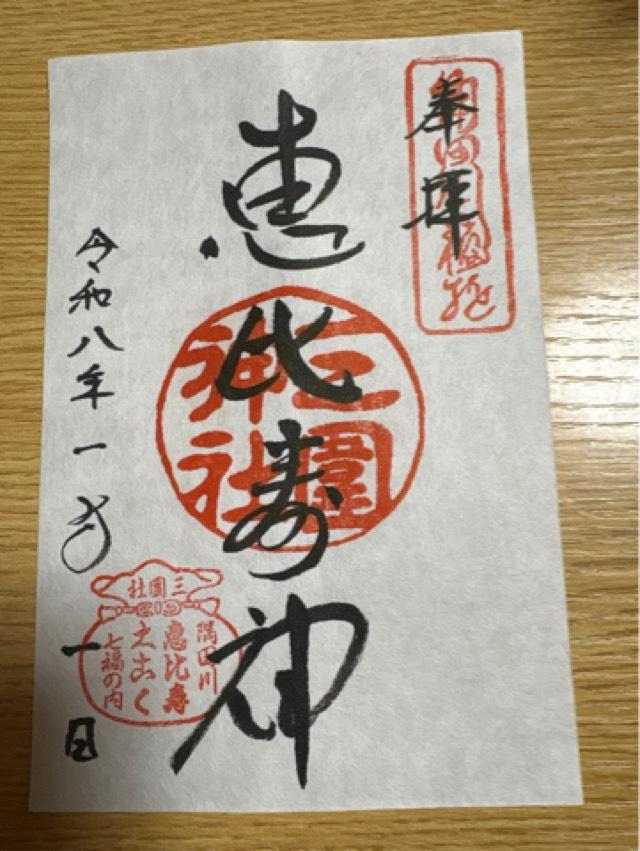 奉拝
恵比寿神
三囲
神社
令和八年一月一日
三囲社
隅田川
恵比寿
大こく
七福の内